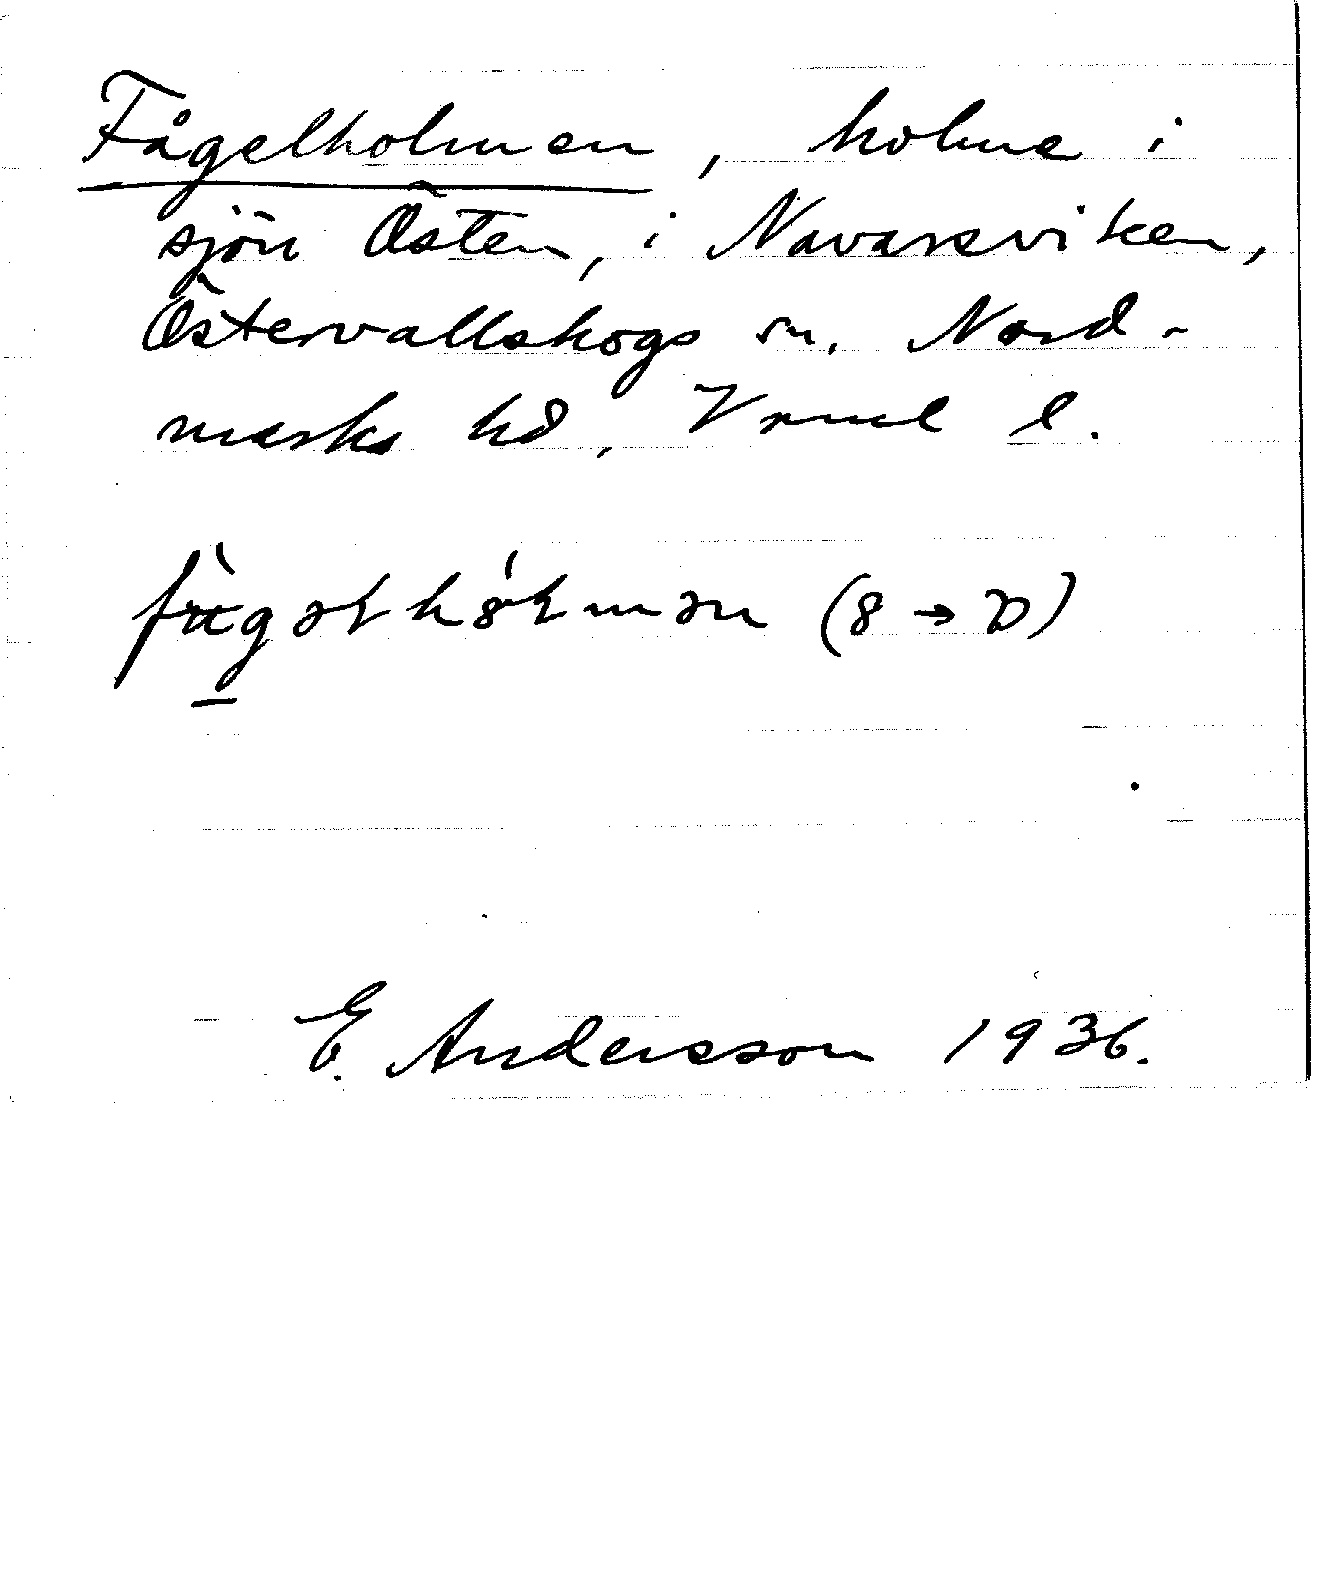 Fågelholmen, holme i
sjön Östen, i Navarsviken,
Östervallskogs sn. Nord-
marks hd, Vrml l.
(8 →
E. Andersson 1936.